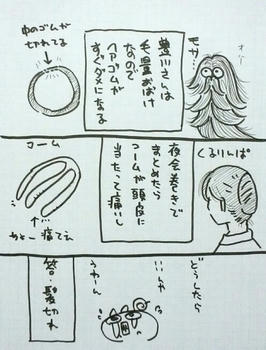 モサ…
オリー
豊川さんは
毛量おばけ
なので
ヘアゴムが
すぐダメになる
中のゴムが
切れてる
くるりんぱ
夜会巻きで
まとめたら
コームが頭皮に
当たって痛いし
コーム
痛てえ
どうしたら
いいんや
うわーん
答・髪切れ